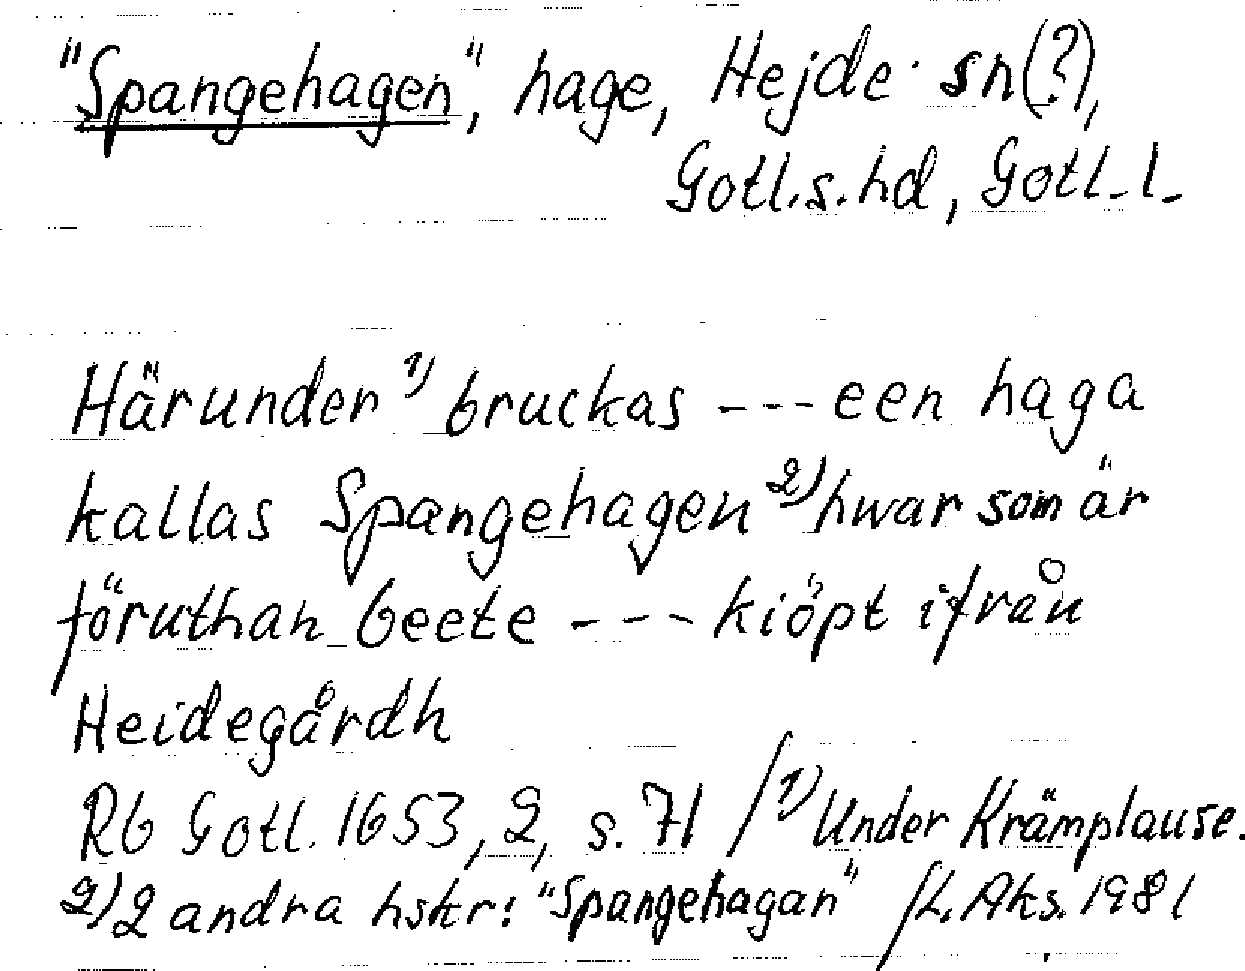 "Spangehagen", hage, Hejde sn(?),
Gotl.s.hd, Gotl. l.
Härunder 1) bruckas --- een haga
kallas Spangehagen 2) hwar som är
föruthan beete --- kiöpt ifrån
Heidegårdh
Rb Gotl. 1653, 2, s. 71 / 1) Under Krämplause.
2) 2 andra hskr: "Spangehagan" / L. Aks. 1981